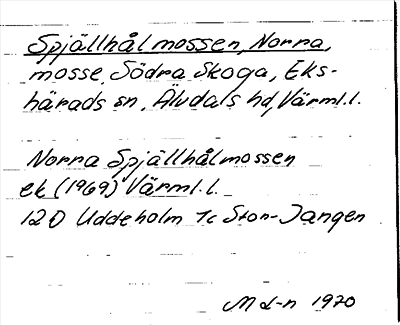 Spjällhålmossen, Norra,
mosse, Södra Skoga, Eks-
härads sn, Älvdals hd, Värml.l.
Norra Spjällhålmossen
ek (1969) Värml.l.
12 D Uddeholm 1c Stor-Jangen
M d-n 1970